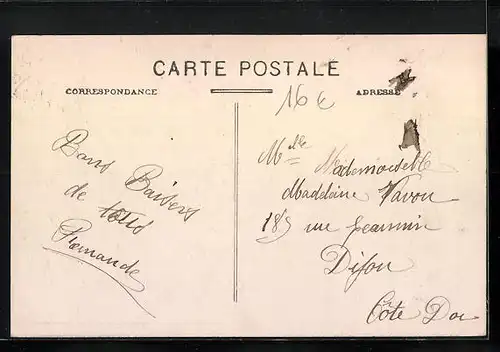 CARTE POSTALE
CORRESPONDANCE
ADRESSE
16 €
Bons Baisers
de tous
Romande
Mlle Mademoiselle
Madeleine Vavon
18, rue Jeannin
Dijon
Côte Dor